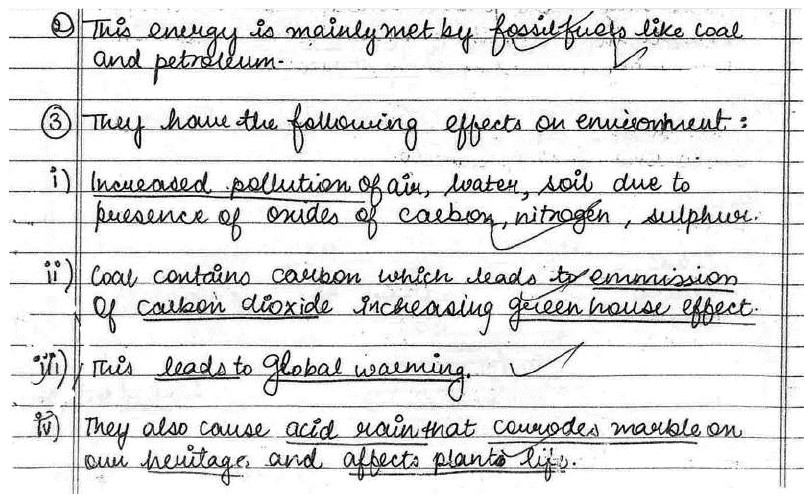 ② This energy is mainly met by fossil fuels like coal
and petroleum.
③ They have the following effects on environment :
i) Increased pollution of air, water, soil due to
presence of oxides of carbon, nitrogen, sulphur.
ii) Coal contains carbon which leads to emmission
of carbon dioxide increasing green house effect.
iii) This leads to global warming.
iv) They also cause acid rain that corrodes marble on
our heritage, and affects plants life.